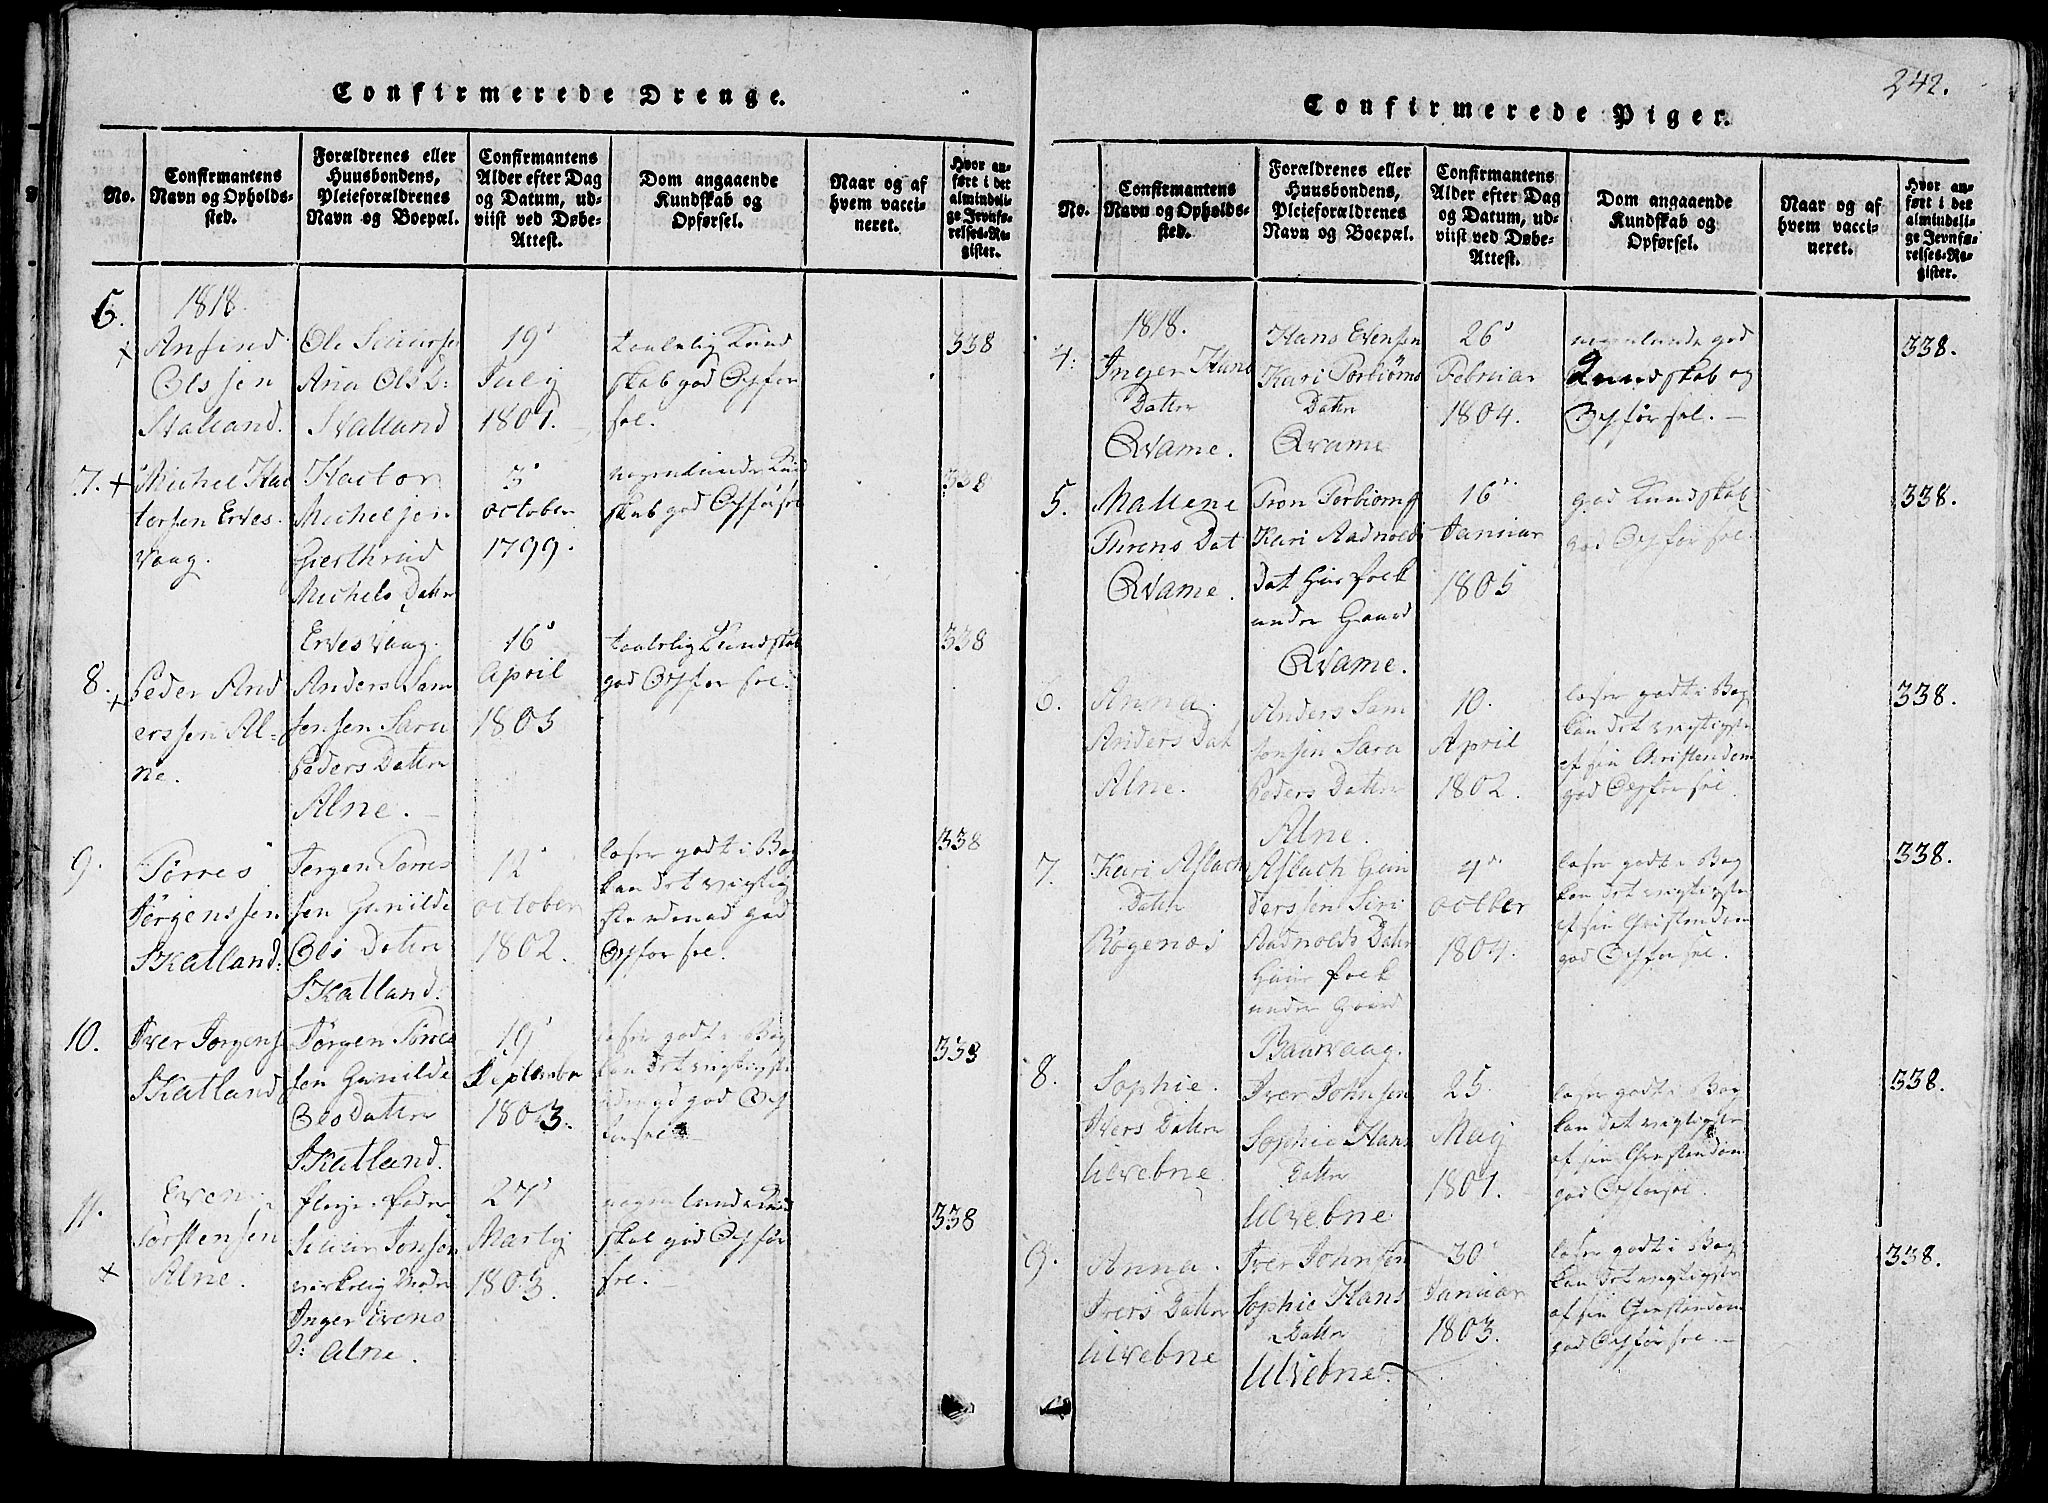 Confirmerede Drenge.
No.
Confirmantens
Navn og Opholds-
sted.
Forældrenes eller
Huusbondens,
Pleieforældrenes
Navn og Boepæl.
Confirmantens
Alder efter Dag
og Datum, ud-
viist ved Døbe-
Attest.
Dom angaaende
Kundskab og
Opførsel.
Naar og af
hvem vacci-
neret.
Hvor an-
ført i det
almindeli-
ge Jevnfø-
relses-Re-
gister.
6.
1818.
Ansind
Olssen
Stalland.
Ana Olsd:
Stalland
19
July
1801.
taalelig Kund
skab god Opfør
sel.
338
7. +
Michel Hac
torsen Erves
vaag.
Hactor
Michelsen
Gierthrud
Michels Datter
Ervesvaag.
3
october
1799.
nogenlunde Kund
skab god Opførsel
338
8. +
Peder And
erssen Al-
ne.
Anders Sam
sonsen Sara
Peders Datter
Alne.
16
April
1805
taalelig Kundskab
god Opførsel.
338
9.
Torres
Jørgenssen
Skatland.
Jørgen Torres
sen Gunilde
Ols Datter
Skatland.
12
october
1802.
læser godt i Bog
kan det vigtig
ste udenad god
Opførsel.
338
10.
Iver Jørgens
Skatland
Jørgen Torres
sen Gunilde
Ols Datter
Skatland.
19
September
1803.
læser godt i Bog
kan det vigtigste
udenad god Op
førsel
338
11.
+
Even
Torstensen
Alne.
Pleje-fader
virkelig Moder
Inger Evens
D: Alne.
27
Martij
1803.
nogenlunde Kund
skab god Opfør
sel.
338
242.
Confirmerede Piger.
No.
Confirmantens
Navn og Opholds-
sted.
Forældrenes eller
Huusbondens,
Pleieforældrenes
Navn og Boepæl.
Confirmantens
Alder efter Dag
og Datum, ud-
viist ved Døbe-
Attest.
Dom angaaende
Kundskab og
Opførsel.
Naar og af
hvem vacci-
neret.
Hvor an-
ført i det
almindeli-
ge Jevnfø-
relses-Re-
gister.
4.
1818.
Inger Hans
Datter
Qvame.
Hans Evensen
Kari Torbiørns
Datter
Qvame
26
Februar
1804.
nogenlunde god
Kundskab og
Opførsel.
338.
5.
Mallene
Turens Dat
Qvame.
Kari Aadnolds
Dat Huusfolk
under Gaard
Qvame.
16
Januar
1805
god Kundskab
god Opførsel.
338.
6.
Anna.
Anders Dat
Alne.
Anders Sam
sonsen Sara
Peders Datter
Alne.
10.
April
1802.
læser godt i Bog
kan det vigtigste
af sin Christendom
god Opførsel.
338.
7.
Kari Aslach
Datter
Røgenæs
Aslach Gun
derssen Siri
Aadnolds Datter
Huus folk
under Gaard
Baarvaag.
4
october
1804.
læser godt i Bog
kan det vigtigste
af sin Christendom
god Opførsel.
338.
8.
Sophie.
Ivers Datter
Ulvebne
Iver Johnsen
Sophie Hans
Datter
Ulvebne
25.
May
1801.
læser godt i Bog
kan det vigtigste
af sin Christendom
god Opførsel.
338.
9.
Anna.
Ivers Datter
Ulvebne
Iver Johnsen
Sophie Hans
Datter
Ulvebne.
30
Januar
1803.
læser godt i Bog
kan det vigtigste
af sin Christendom
god Opførsel.
338.